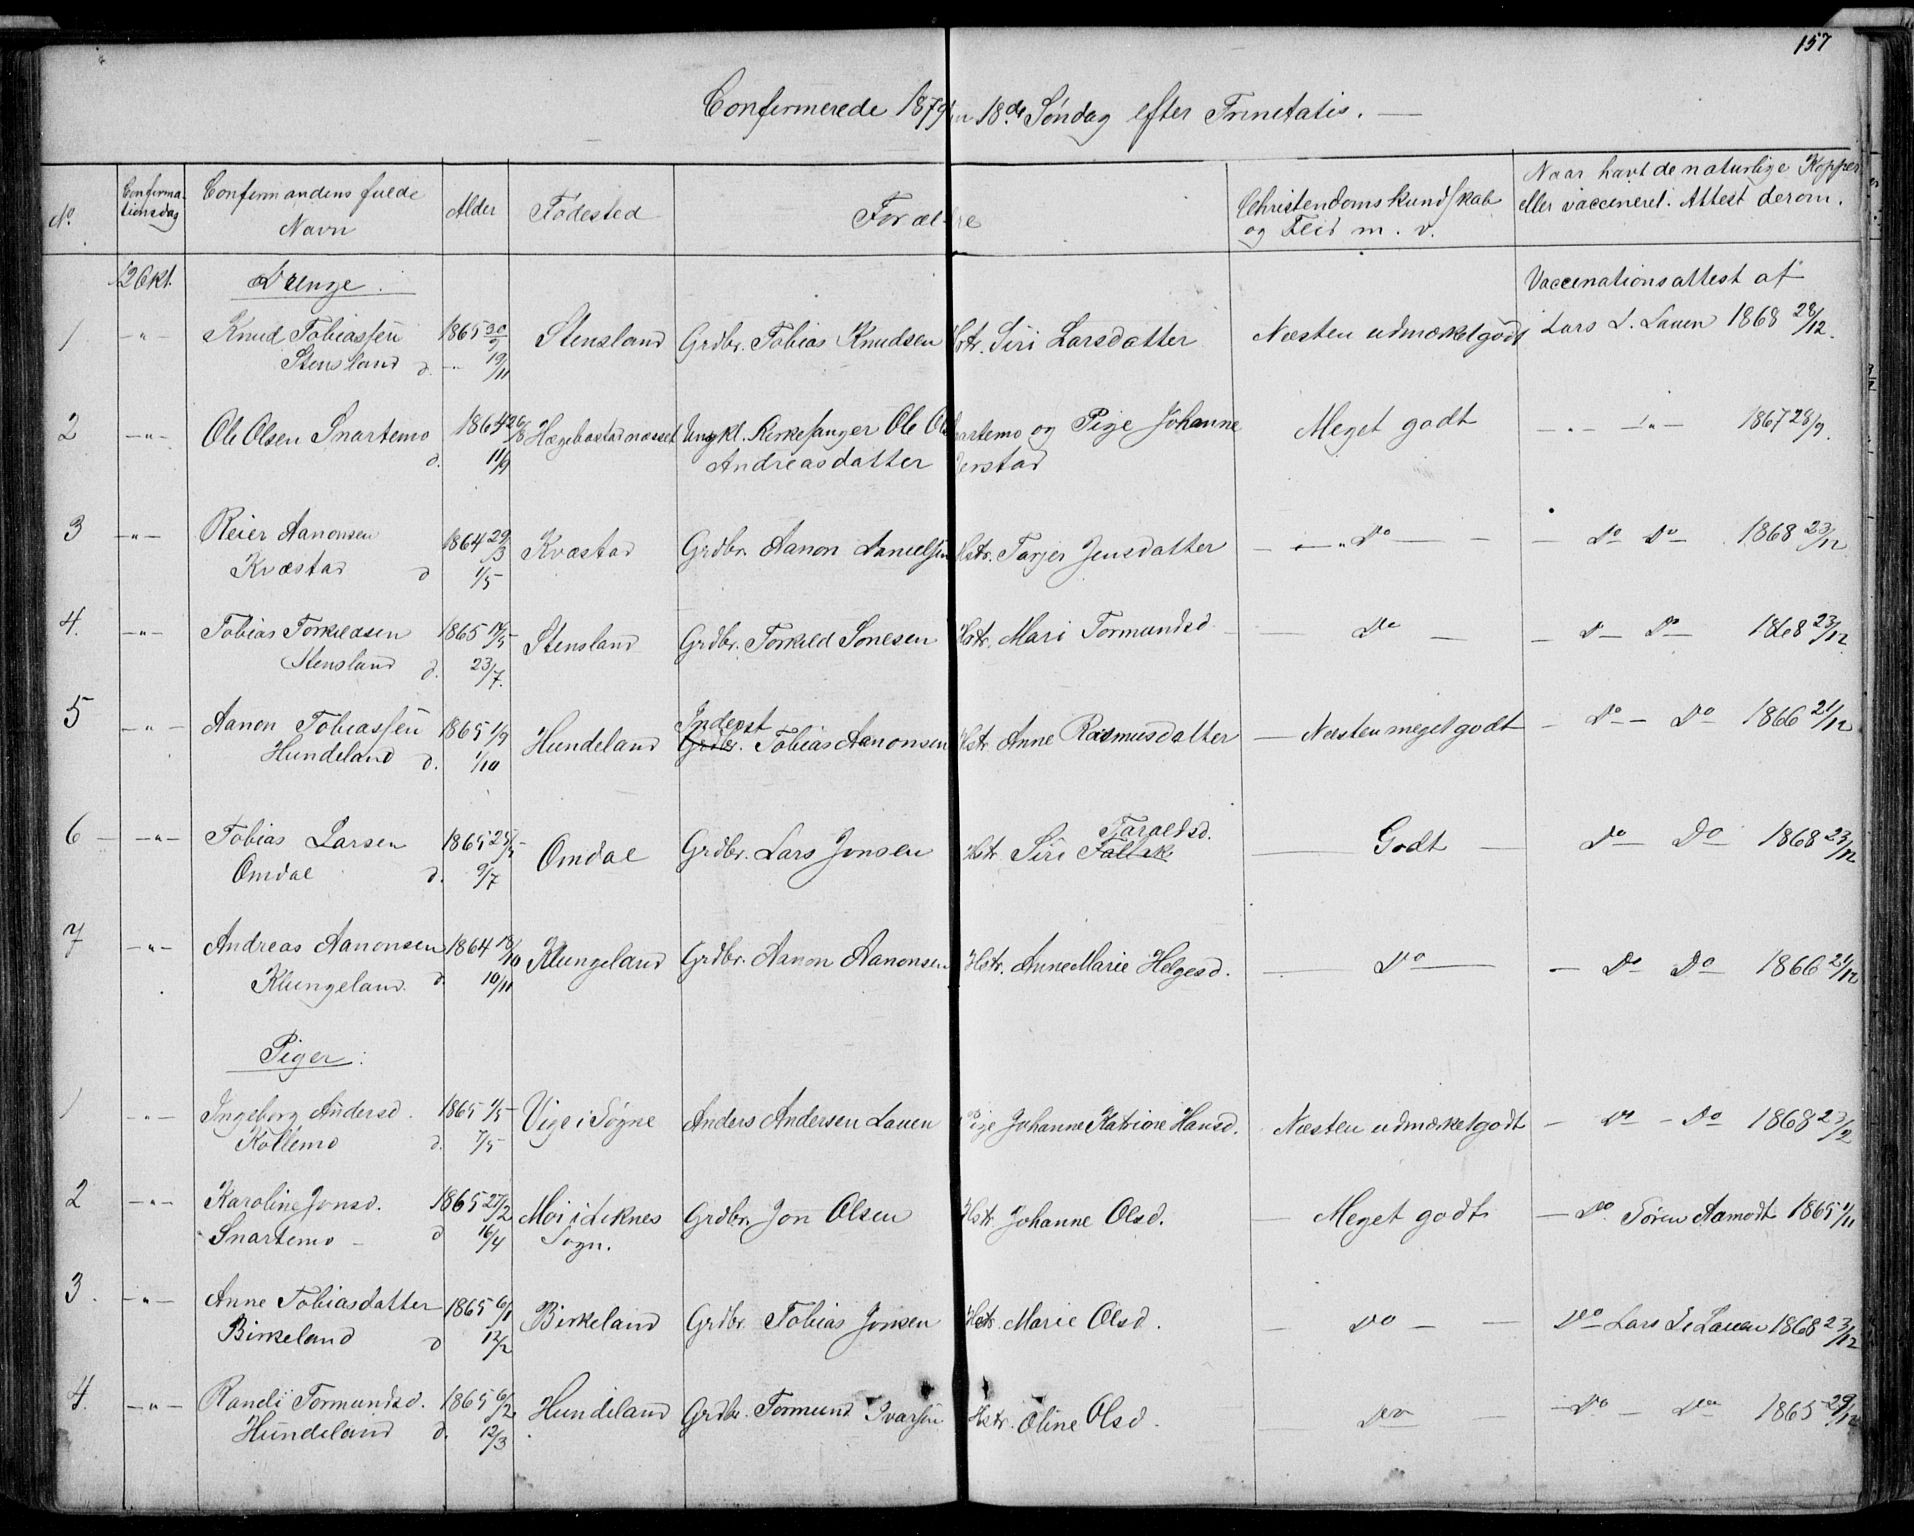 157
Confirmerede 1879 18de Søndag efter Trinitatis. —
No. Confirma-tionsdag Confirmandens fulde Navn Alder Fødested Forældre Christendomskundskab og Flid m. v. Naar havt de naturlige Kopper eller vaccineret. Attest derom.
12 Okt. Drenge: Vaccinationsattest af
1 -"- Knud Tobiassen 1865 30/9 Stensland Grdbr. Tobias Knudsen Hstr. Siri Larsdatter Næsten udmærketgodt Lars L. Lauen 1868 28/12.
Stensland d. -"- 19/11
2 -"- Ole Olsen Snartemo 1864 26/8 Hægebostadnæsset Ungkl. Kirkesanger Ole Snartemo og Pige Johanne Meget godt -"- -"- 1867 28/9.
d. 11/9 Andreasdatter
3 -"- Reier Aanonsen 1864 29/3 Kvæstad Grdbr. Aanon Danielsen Hstr. Tarjer Jensdatter -"- Do — Do Do 1868 23/12
Kvæstad d 1/5
4. -"- Tobias Torkildsen 1865 14/5 Stensland Grdbr. Torkild Sonesen Hstr. Mari Tormundsd — Do — — d— Do 1868 23/12
Stensland d. 23/7.
5 -"- Aanon Tobiassen 1865 1/9 Hundeland Inderst Grdbr. Tobias Aanonsen Hstr. Anne Rasmusdatter — Næsten meget godt — Do — Do 1866 21/12
Hundeland d. 1/10
6 -"- Tobias Larsen 1865 25/5 Omdal Grdbr. Lars Jonsen Hstr Siri Falk Taraldsd. — Godt — Do Do 1868 23/12
Omdal d. 9/7
7 -"- Andreas Aanonsen 1864 18/10 Klungeland Grdbr. Aanon Aanonsen Hstr. Anne Marie Helgesd. — Do — — Do Do 1866 21/12
Klungeland. d. 10/11
Piger:
1 -"- Ingeborg Andersd. 1865 1/5 Vige i Søgne Anders Andersen Lauen Pige Johanne Katrine Hansd. Næsten udmærketgodt — Do — Do 1868 23/2
Kollemo d. 7/5
2 -"- Karoline Jonsd. 1865 27/2 Moi i Liknes Grdbr. Jon Olsen Hstr Johanne Olsd. — Meget godt — Do Søren Aamodt 1865 1/11
Snartemo — d 16/4 Sogn.
3. -"- Anne Tobiasdatter 1865 6/1 Birkeland Grdbr. Tobias Jonsen Hstr. Marie Olsd. — Do — Do Lars L. Lauen 1868 23/12
Birkeland d 12/2
4. -"- Randi Tormundsd. 1865 6/2 Hundeland Grdbr. Tormund Ivarsen Hstr. Oline Olsd. — Do — Do — Do 1865 29/12
Hundeland d. 12/3